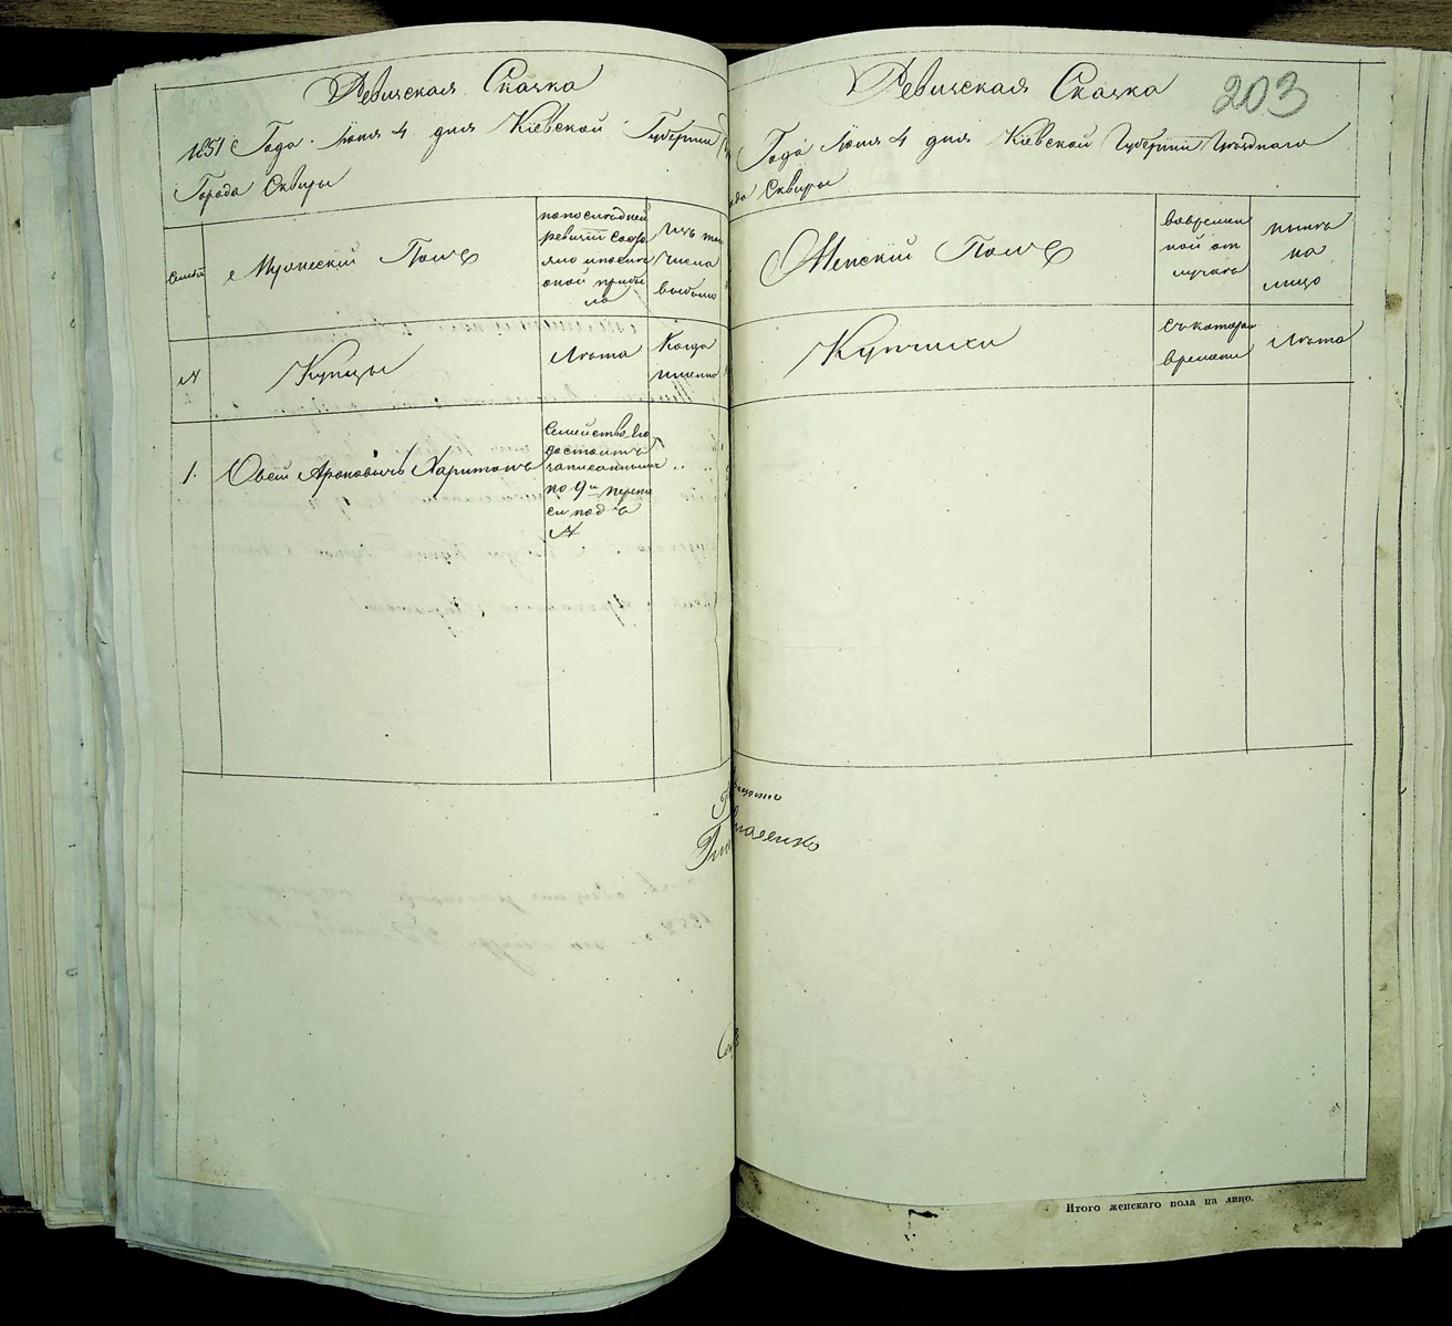 Ревизская Сказка
1851 Года Июня 4 дня Кіевской Губерніи
Города Сквиры
Семьи
Мужескій Полъ
по последней
ревизіи состо
яло и после
оной прибы
ло
Изъ то
числа
выбыло
№
Купцы
Лѣта
Когда
именно
1.
Овсей Ароновичъ Харитонъ
Семейство Его
состоитъ
записаннымъ
по 9й перепи
си подъ
№
Ревизская Сказка
203
Года Июня 4 дня Кіевской Губерніи Уѣзднаго
Сквиры
Женскій Полъ
во времен
ной от
лучкѣ
нынѣ
на
лицо
Купчихи
Съ котораго
времени
Лѣта
Итого женскаго пола на лицо.